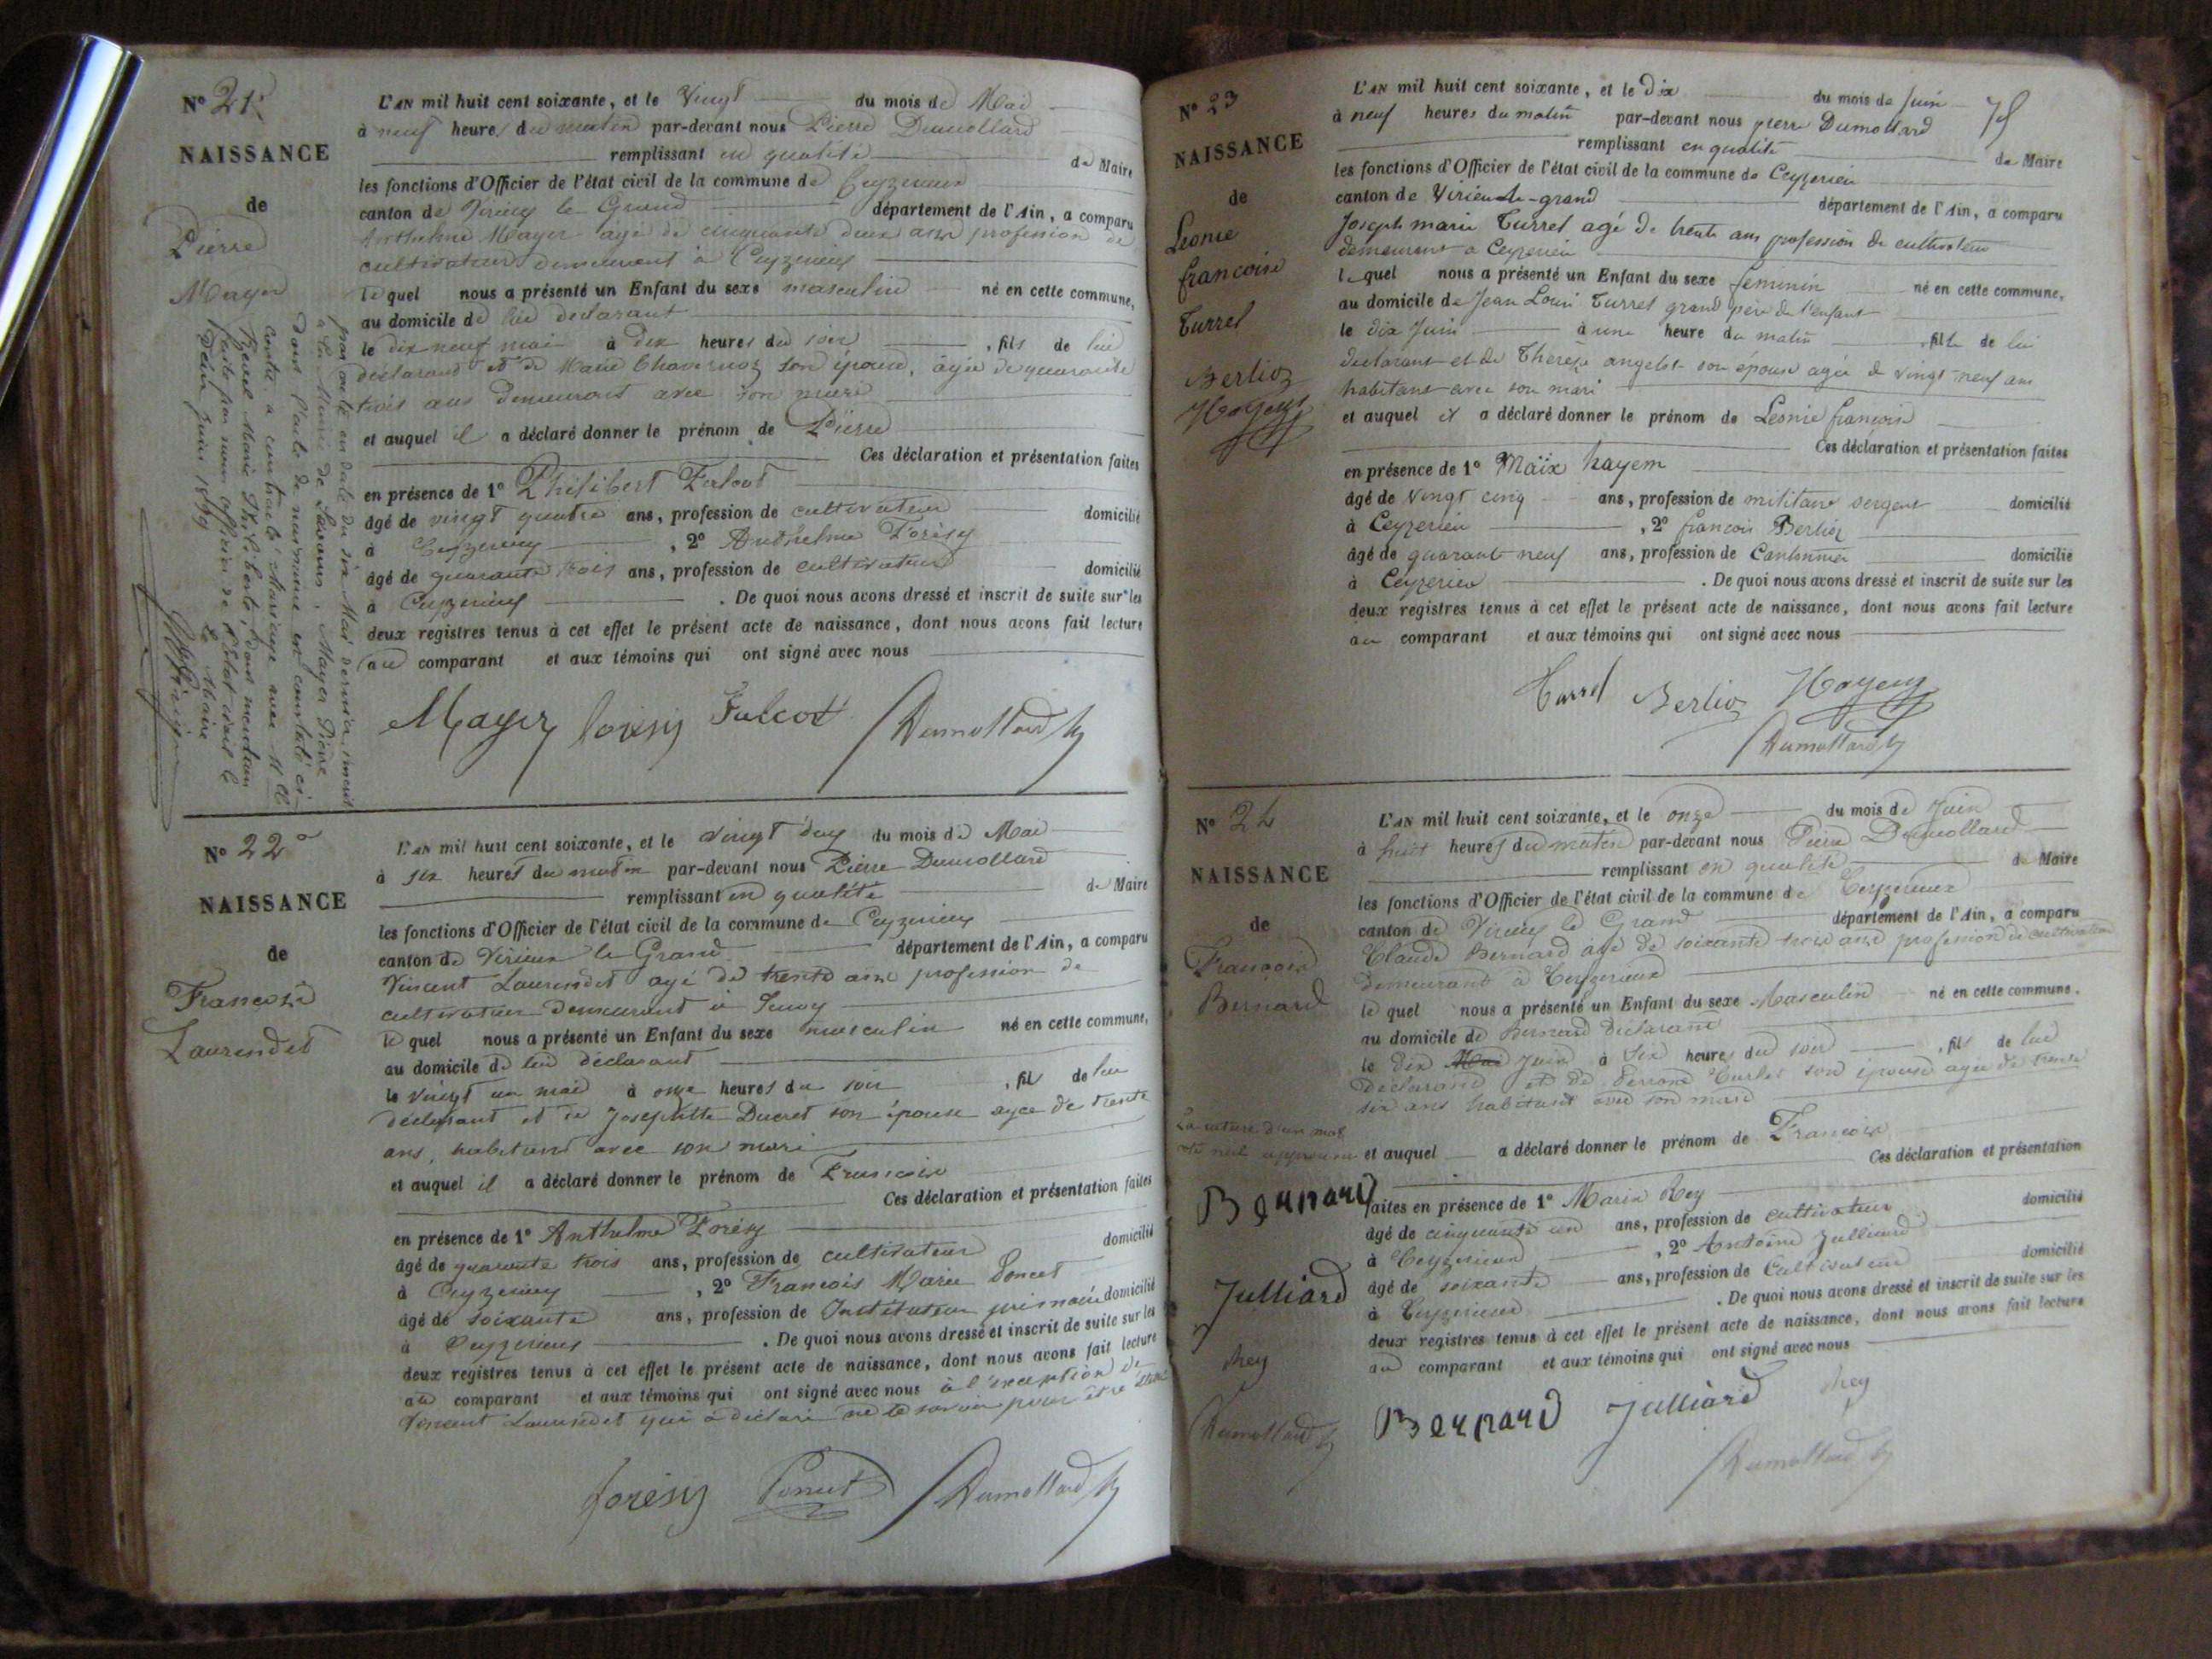 N° 21
NAISSANCE
de
Pierre
Mayer
L'AN mil huit cent soixante, et le Vingt du mois de Mai
à neuf heures du matin par-devant nous Pierre Dumollard
remplissant en qualité de Maire
les fonctions d'Officier de l'état civil de la commune de Ceyzerieux
canton de Virieu le Grand département de l'Ain, a comparu
Anthelme Mayer agé de cinquante deux ans profession de
cultivateur demeurant à Ceyzerieu
le quel nous a présenté un Enfant du sexe masculin né en cette commune,
au domicile de lui declarant
le dix neuf mai à dix heures du soir , fils de lui
déclarant et de Marie Chavernoz son épouse, agée de quarante
trois ans demeurant avec son mari
et auquel il a déclaré donner le prénom de Pierre
Ces déclaration et présentation faites
en présence de 1° Philibert Falcot
âgé de vingt quatre ans, profession de cultivateur domicilié
à Ceyzerieu , 2° Anthelme Forésy
âgé de quarante trois ans, profession de cultivateur domicilié
à Ceyzerieu . De quoi nous avons dressé et inscrit de suite sur les
deux registres tenus à cet effet le présent acte de naissance, dont nous avons fait lecture
au comparant et aux témoins qui ont signé avec nous
Mayer forésy Falcot Dumollard
par acte en date du six Mai dernier, inscrit
à la Mairie de , Mayer Pierre
dont l'acte de naissance est constaté ci-
contre a contracté Mariage avec Melle
Marie Philiberte, dont mention
faite par nous officier de l'état civil le
juin 1889
Le Maire
N° 22
NAISSANCE
de
Francois
Laurendet
L'AN mil huit cent soixante, et le vingt deux du mois de Mai
à six heures du matin par-devant nous Pierre Dumollard
remplissant en qualité de Maire
les fonctions d'Officier de l'état civil de la commune de Ceyzerieu
canton de Virieux le Grand département de l'Ain, a comparu
Vincent Laurendet agé de trente ans profession de
cultivateur demeurant à
le quel nous a présenté un Enfant du sexe masculin né en cette commune,
au domicile de lui déclarant
le vingt un mai à onze heures du soir , fils de lui
déclarant et de Josephtte Ducret son épouse agée de trente
ans, habitant avec son mari
et auquel il a déclaré donner le prénom de Francois
Ces déclaration et présentation faites
en présence de 1° Anthelme Forésy
âgé de quarante trois ans, profession de cultivateur domicilié
à Ceyzerieu , 2° Francois Marie Poncet
âgé de soixante ans, profession de Instituteur primaire domicilié
à Ceyzerieu . De quoi nous avons dressé et inscrit de suite sur les
deux registres tenus à cet effet le présent acte de naissance, dont nous avons fait lecture
au comparant et aux témoins qui ont signé avec nous à l'exception de
Vincent Laurendet qui a déclaré ne le savoir pour être
forésy Poncet Dumollard
N° 23
NAISSANCE
de
Leonie
francoise
Turrel
Berlioz
Hayem
L'AN mil huit cent soixante, et le Dix du mois de Juin
à neuf heures du matin par-devant nous pierre Dumollard
remplissant en qualité de Maire
les fonctions d'Officier de l'état civil de la commune de Ceyzerieu
canton de Virieu-le-grand département de l'Ain, a comparu
Joseph marie Turrel agé de trente ans profession de cultivateur
demeurant a Ceyzerieu
lequel nous a présenté un Enfant du sexe feminin né en cette commune,
au domicile de Jean Louis Turrel grand père de l'enfant
le dix Juin à une heure du matin , fille de lui
declarant et de Thereze angelot son épouse agée de vingt neuf ans
habitant avec son mari
et auquel il a déclaré donner le prénom de Leonie francoise
Ces déclaration et présentation faites
en présence de 1° Maïx hayem
âgé de vingt cinq ans, profession de militaire sergent domicilié
à Ceyzerieu , 2° francois Berlioz
âgé de quarante neuf ans, profession de Cantonnier domicilié
à Ceyzerieu . De quoi nous avons dressé et inscrit de suite sur les
deux registres tenus à cet effet le présent acte de naissance, dont nous avons fait lecture
au comparant et aux témoins qui ont signé avec nous
Turrel Berlioz Hayem
Dumollard
N° 24
NAISSANCE
de
Francois
Bernard
L'AN mil huit cent soixante, et le onze du mois de Juin
à huit heures du matin par-devant nous Pierre Dumollard
remplissant en qualité de Maire
les fonctions d'Officier de l'état civil de la commune de Ceyzerieux
canton de Virieu le Grand département de l'Ain, a comparu
Claude Bernard agé de soixante trois ans profession de cultivateur
demeurant à Ceyzerieux
le quel nous a présenté un Enfant du sexe Masculin né en cette commune.
au domicile de Bernard déclarant
le dix Mai Juin à six heures du soir , fils de lui
déclarant et de son épouse agée de trente
six ans habitant avec son mari
La rature d'un mot
et nul approuvé
et auquel a déclaré donner le prénom de Francois
Ces déclaration et présentation
faites en présence de 1° Marin Rey
âgé de cinquante un ans, profession de cultivateur domicilié
à Ceyzerieux , 2° Antoine Julliard
âgé de soixante ans, profession de Cultivateur domicilié
à Ceyzerieux . De quoi nous avons dressé et inscrit de suite sur les
deux registres tenus à cet effet le présent acte de naissance, dont nous avons fait lecture
au comparant et aux témoins qui ont signé avec nous
Bernard
Julliard
Rey
Dumollard
Bernard Julliard Rey
Dumollard